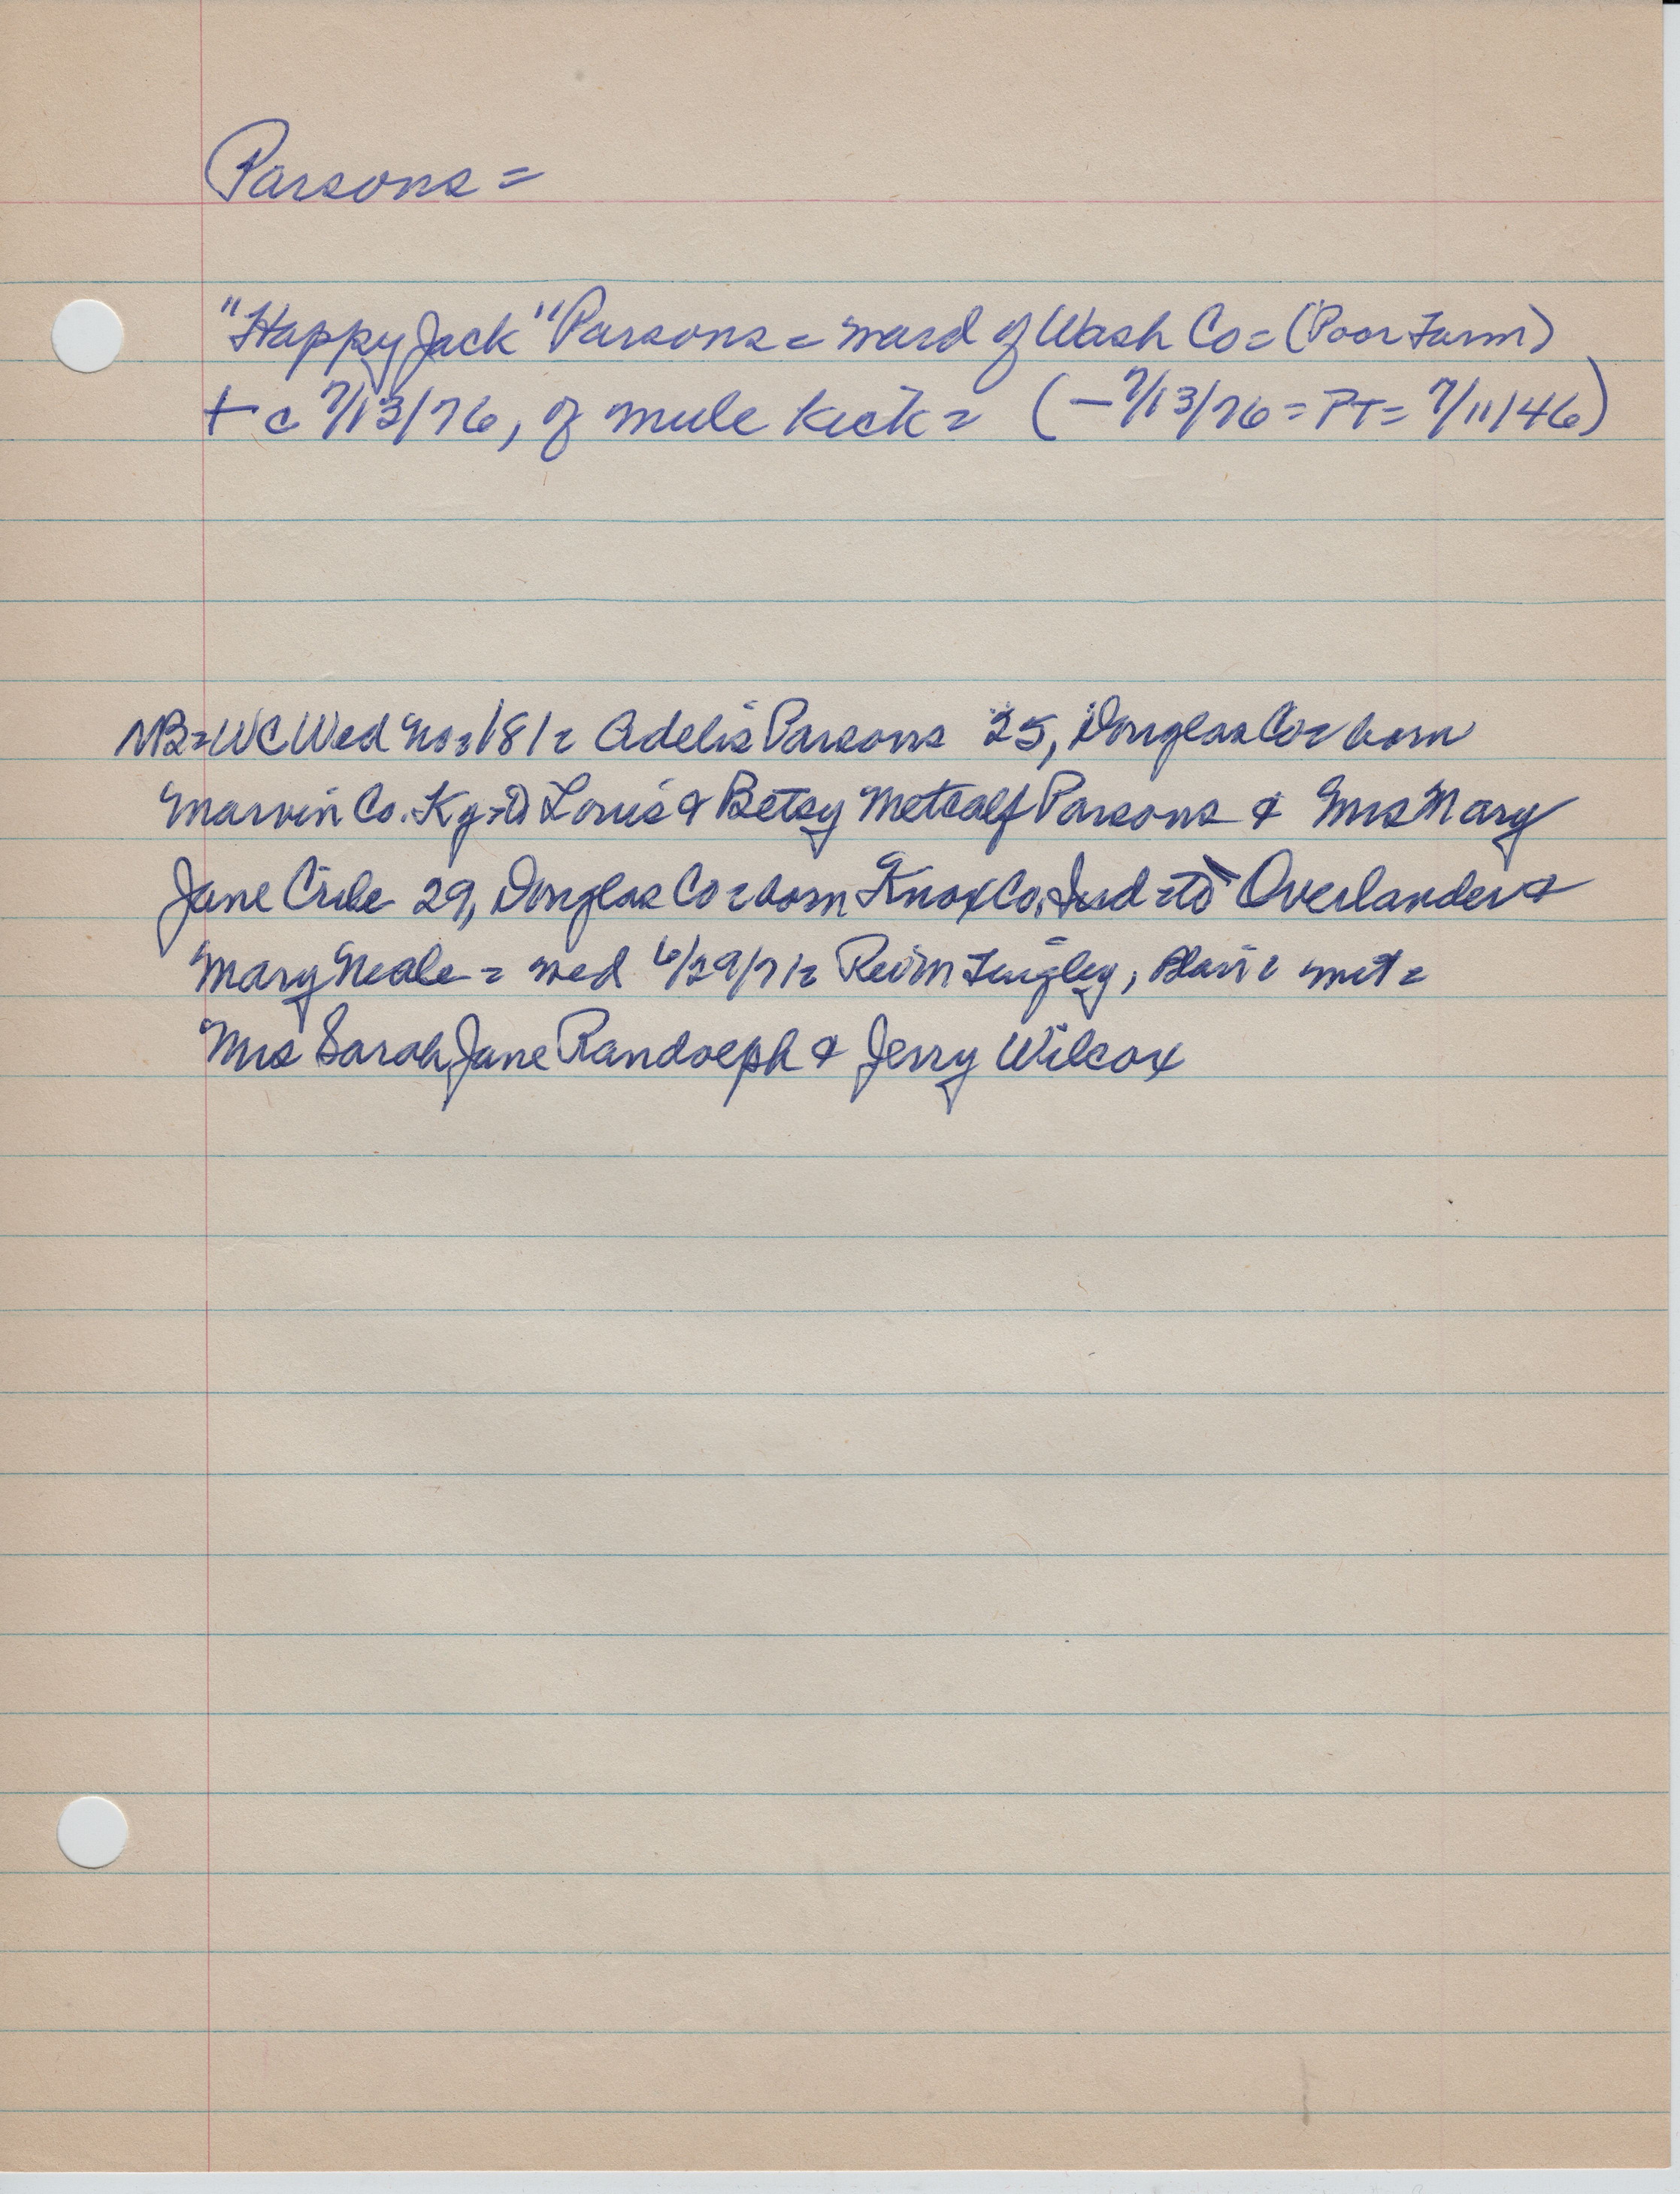 Parsons =
"Happy Jack" Parsons = ward of Wash Co = (Poor Farm)
+ c 7/13/76, of mule kick = (-7/13/76 = PT = 7/11/46)
NB = WC Wed No = 181 = Adelis Parsons 25, Douglas Co = born
Marvin Co. Ky = to Louis & Betsy Metcalf Parsons & Mrs Mary
Jane Crile 29, Douglas Co = born Knox Co. Ind = to Overlander &
Mary Neale = wed 6/29/71 = Rev Tingley, Blair = wit =
Mrs Sarah Jane Randolph & Jerry Wilcox